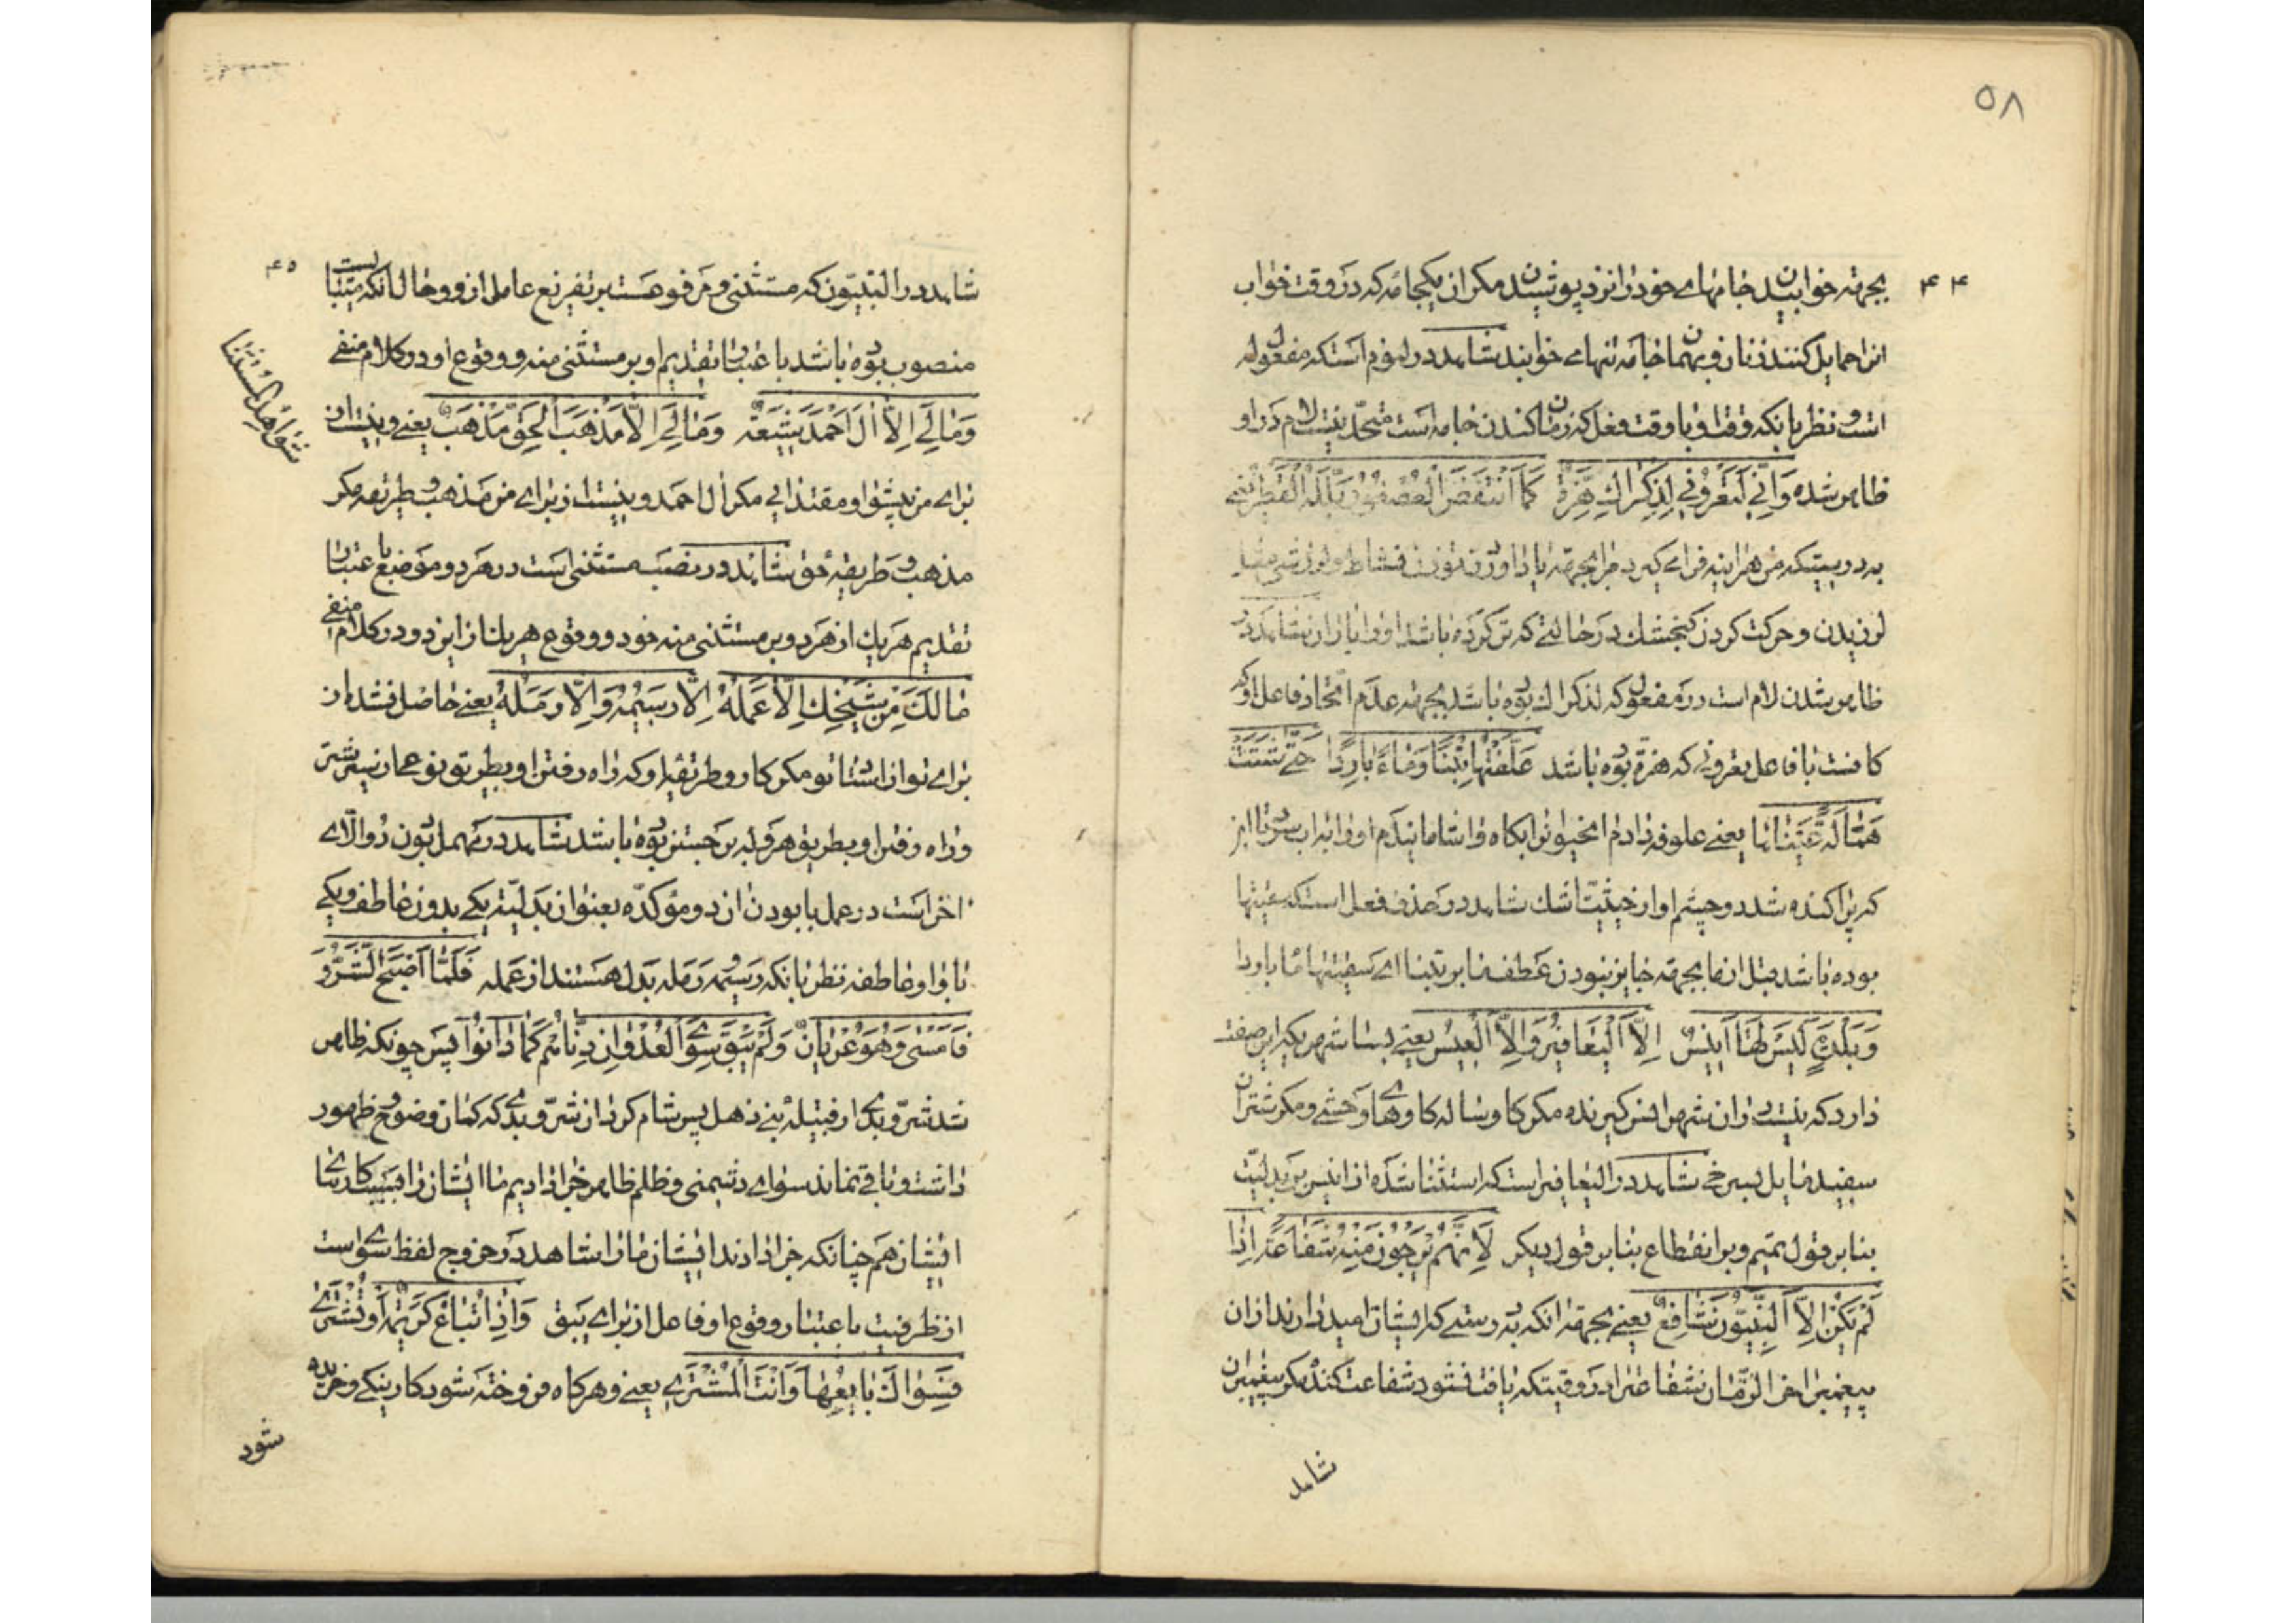 ۵۸
۴۴
بجهة خوابیدن جامهای خود را نزد پوشیدن مکر ان یکجامه که در وقت خواب
انرا حمایل کنند زنان و بهما نجامه تنهای خوابند شاهد در لنوم است که مفعول له
است و نظر بانکه وقت او با وقت فعل که زمان کندن جامه است متحد نیست لام در او
ظاهر شده وَاِنّی لَتَعْرُونی لِذِکْراكِ هِزَّةٌ کَمَا انْتَفَضَ الْعُصْفُورُ بَلَّلَهُ الْقَطْرُ یعنی
بدرستیکه من هراینه فرا می کیرد مرا بجهة یاد اوردن تو نشاط و لرزشی مثل
لرزیدن و حرکت کردن کنجشك در حالتی که تر کرده باشد او را باران شاهد در
ظاهر شدن لام است در مفعول له که لذکراك بوده باشد بجهة عدم اتحاد فاعل او که
کافست با فاعل تعرونی که هزة بوده باشد عَلَّفْتُها تِبْناً وَماءً بارِداً حَتّی شَتَتْ
هَمّالَةً عَیْناها یعنی علوفه دادم انحیوانرا بکاه و اشامانیدم او را به اب سرد تا اینز
که پراکنده شد دو چشم او از حیثیت اشك شاهد در حذف فعل است که سقیتها
بوده باشد قبل از ماء بجهة جایز نبودن عطف ماء بر تبنا ای سقیتها ماء باردا
وَبَلْدَةٍ لَیْسَ لَها اَنیسٌ اِلَّا الْیَعافیرُ وَاِلَّا الْعیسُ یعنی بسا شهریکه این صفت
دارد که نیست در ان شهر انس کیرنده مکر کاو و ساله کاوهای وحشی و مکر شتران
سفید مایل بسرخی شاهد در الیعافیر است که استثنا شده از انیس بر بدلیت
بنا بر قول تمیم و بر انقطاع بنا بر قول دیکر لِاَنَّهُمْ یَرْجُونَ مِنْهُ شَفاعَةً اِذا
لَمْ یَکُنْ اِلَّا النَّبِیُّونَ شافِعٌ یعنی بجهة انکه بدرستی که ایشان امید دارند از ان
پیغمبر اخر الزمان شفاعترا در وقتیکه یافت نشود شفاعت کننده مکر پیغمبران
شاهد
۴۵
شاهد در النبیون که مستثنی و مرفوعست بر تفریغ عامل از او و حال انکه میبایست
منصوب بوده باشد باعتبار تقدیم او بر مستثنی منه و وقوع او در کلام منفی
وَمالِیَ اِلّا الَ اَحْمَدَ شیعَةٌ وَمالِیَ اِلّا مَذْهَبَ الْحَقِّ مَذْهَبٌ یعنی و نیست از
برای من پیشوا و مقتدایی مکر ال احمد و نیست از برای من مذهب و طریقه مکر
مذهب و طریقه حق شاهد در نصب مستثنی است در هر دو موضع باعتبار
تقدیم هر یك از هر دو بر مستثنی منه خود و وقوع هر یك از این دو در کلام منفی
مالَكَ مِنْ شَیْخِكَ اِلّا عَمَلُهُ اِلّا رَسیمُهُ وَاِلّا رَمَلُهُ یعنی حاصل نشد از
برای تو از استاد تو مکر کار و طریقه او که راه رفتن او بطریق نوعی از سیر شتر
و راه رفتن او بطریق هروله بر جستن بوده باشد شاهد در مهمل بودن دو الای
اخر است در عمل با بودن ان دو مؤکده بعنوان بدلیة یکی بدون عاطف و یکی
با واو عاطفه نظر بانکه رسیمه و رمله بدل هستند از عمله فَلَمّا اَصْبَحَ الشَّرُّ وَ
فَاَمْسی وَهُوَ عُرْیانٌ وَلَمْ یَبْقَ سِوَی الْعُدْوانِ دِنّاهُمْ کَما دانُوا پس چونکه ظاهر
شد شر و بدی از قبیله بنی ذهل پس شام کرد ان شر و بدی که کمال وضوح و ظهور
داشت و باقی نماند سوای دشمنی و ظلم ظاهر جزا دادیم ما ایشان را بسبب کارهای
ایشان هم چنانکه جزا دادند ایشان ما را شاهد در خروج لفظ سوی است
از ظرفیت باعتبار وقوع او فاعل از برای یبق وَاِذا تُباعُ کَریمَةٌ اَوْ تُشْتَری
فَسِواكَ بایِعُها وَاَنْتَ الْمُشْتَری یعنی و هرکاه فروخته شود کار نیکی و خریده
شود
شواهد المستثنی